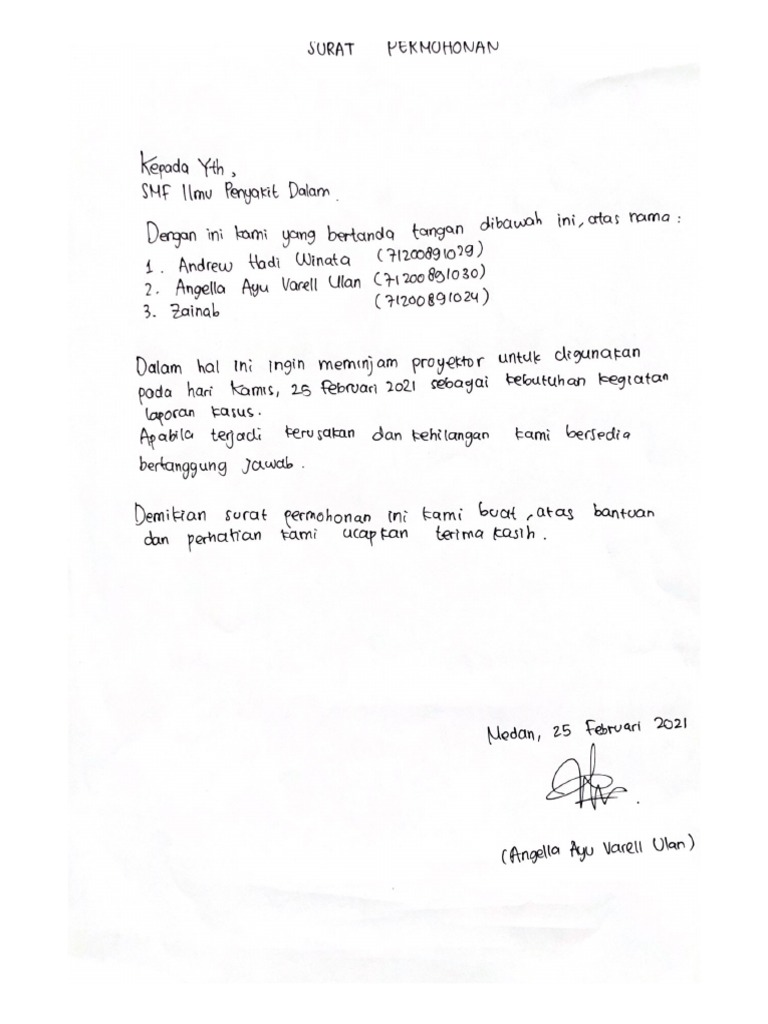 SURAT PERMOHONAN
Kepada Yth,
SMF Ilmu Penyakit Dalam.
Dengan ini kami yang bertanda tangan dibawah ini, atas nama :
1. Andrew Hadi Winata (71200891029)
2. Angella Ayu Varell Ulan (71200891030)
3. Zainab (71200891024)
Dalam hal ini ingin meminjam proyektor untuk digunakan
pada hari Kamis, 25 Februari 2021 sebagai kebutuhan kegiatan
laporan kasus.
Apabila terjadi kerusakan dan kehilangan kami bersedia
bertanggung jawab.
Demikian surat permohonan ini kami buat, atas bantuan
dan perhatian kami ucapkan terima kasih.
Medan, 25 Februari 2021
(Angella Ayu Varell Ulan)